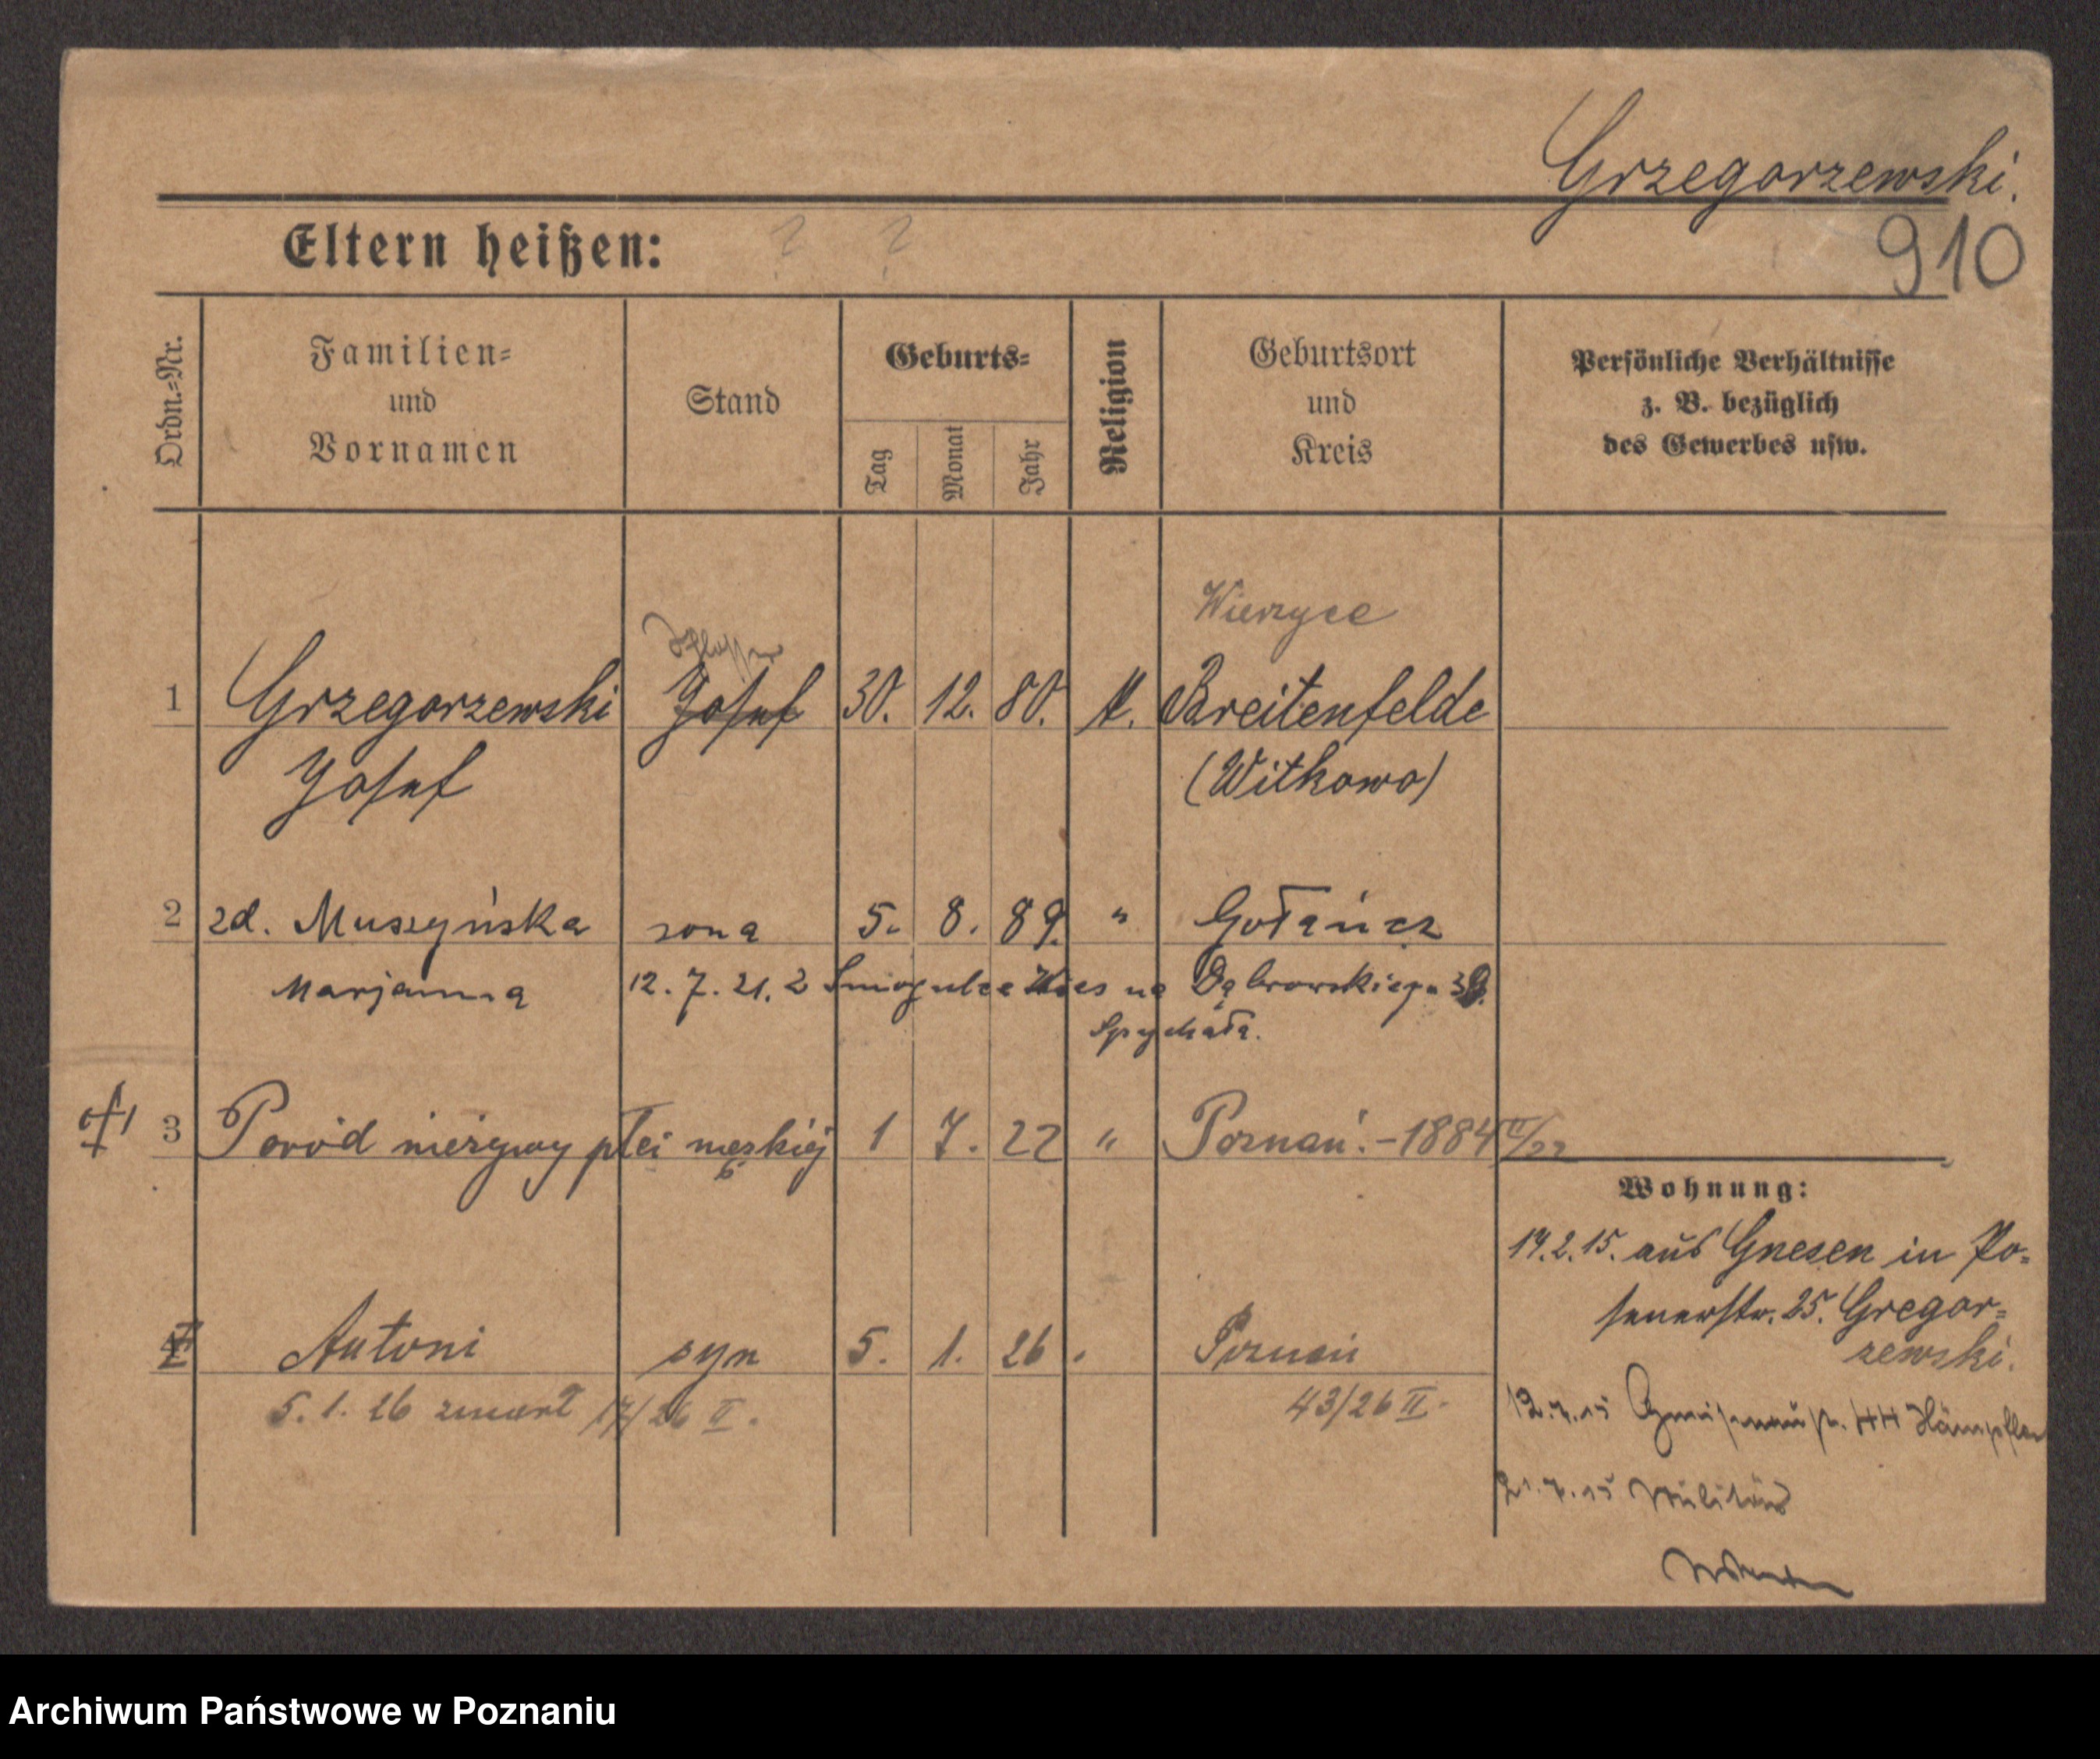 Grzegorzewski.
910
Eltern heißen: ? ?
Ordn.=Nr.
Familien=
und
Vornamen
Stand
Geburts=
Tag
Monat
Jahr
Religion
Geburtsort
und
Kreis
Persönliche Verhältnisse
z. B. bezüglich
des Gewerbes usw.
Wierzyce
Schlosser
1 Grzegorzewski Josef 30. 12. 80. K. Breitenfelde
Josef (Witkowo)
2 zd. Muszyńska żona 5. 8. 89. " Gołańcz
Marjanna 12. 7. 21. z Smogulce Wies na Dąbrowskiego
Spychała.
1 3 Poród nieżywy płci męskiej 1 7. 22 " Poznań. - 1884 II/22
Wohnung:
14.2.15. aus Gnesen in Po=
senerstr. 25. Gregor=
zewski.
4 Antoni syn 5. 1. 26 Poznań
5. 1. 26 zmarł 17/26 II. 43/26 II.
12.7.15
21.7.15 Militär
Archiwum Państwowe w Poznaniu